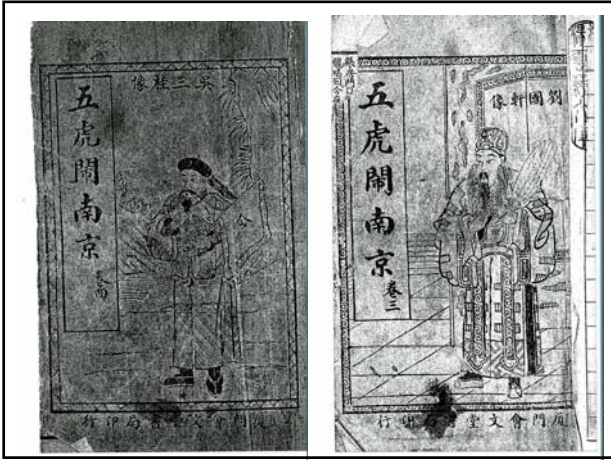 吳三桂像
五虎鬧南京
卷四
門會文堂書局印行
劉國軒像
五虎鬧南京
卷三
廈門會文堂
印行